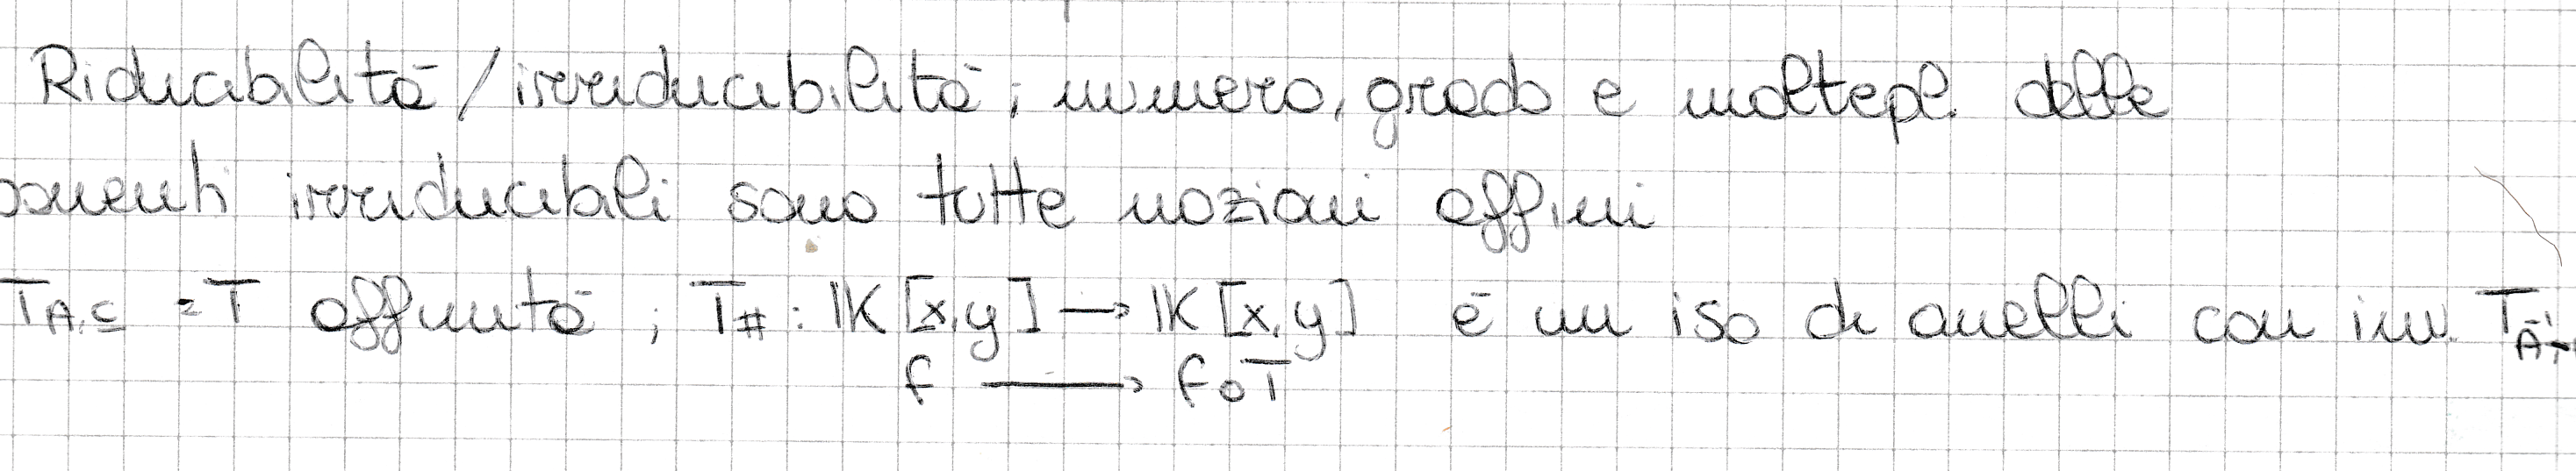 Riducibilità / irriducibilità, numero, grado e moltepl. delle
ponenti irriducibili sono tutte nozioni affini
T_{A,c} = T affinità ; T_# : 𝕂[x,y] → 𝕂[x,y] è un iso di anelli con inv. T_{A^{-1},
f → f∘T